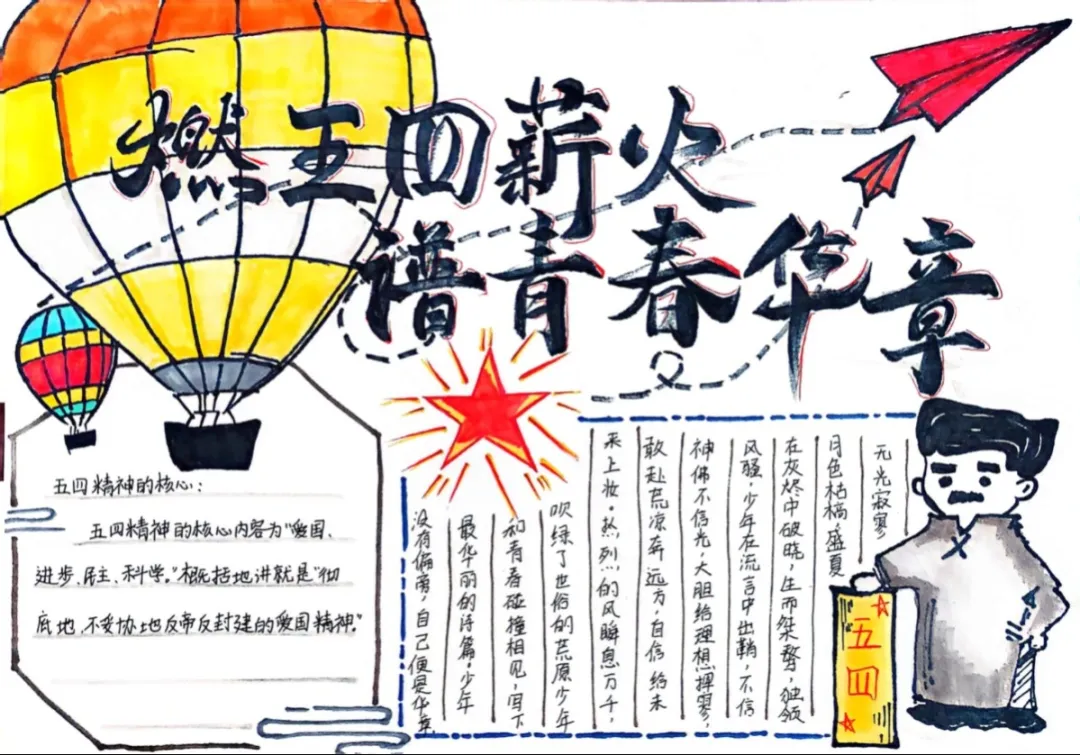 燃五四薪火
谱青春华章
五四精神的核心：
五四精神的核心内容为"爱国、
进步、民主、科学。"概括地讲就是"彻
底地、不妥协地反帝反封建的爱国精神。"
无光寂寥
月色枯槁，盛夏
在灰烬中破晓，生而桀骜，独领
风骚，少年在流言中出鞘，不信
神佛不信光，大胆给理想
敢赴荒凉奔远方，自信给未
来上妆。热烈的风瞬息万千，
吹绿了世俗的荒原少年
和青春碰撞相见，写下
最华丽的诗篇。少年
没有偏旁，自己便是华章
五四